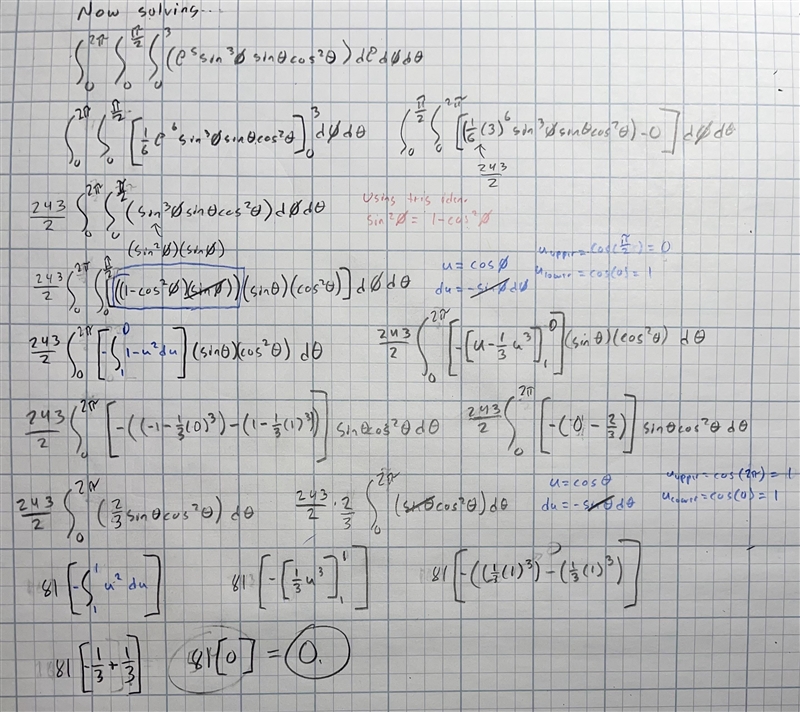 Now solving...
∫₀^2π ∫₀^π/2 ∫₀^3 (ρ⁵ sin³φ sinθ cos²θ) dρ dφ dθ
∫₀^2π ∫₀^π/2 [1/6 ρ⁶ sin³φ sinθ cos²θ]₀^3 dφ dθ
∫₀^π/2 ∫₀^2π [(1/6 (3)⁶ sin³φ sinθ cos²θ) - 0] dφ dθ
↑
243/2
243/2 ∫₀^2π ∫₀^π/2 (sin³φ sinθ cos²θ) dφ dθ
(sin²φ)(sinφ)
Using trig iden.
sin²φ = 1-cos²φ
243/2 ∫₀^2π ∫₀^π/2 [((1-cos²φ)(sinφ))(sinθ)(cos²θ)] dφ dθ
u = cosφ
du = -sinφ dφ
u upper = cos(π/2) = 0
u lower = cos(0) = 1
243/2 ∫₀^2π [-∫₁^0 1-u² du] (sinθ)(cos²θ) dθ
243/2 ∫₀^2π [-[u - 1/3 u³]₁^0] (sinθ)(cos²θ) dθ
243/2 ∫₀^2π [-((-1-1/3(0)³) - (1-1/3(1)³))] sinθ cos²θ dθ
243/2 ∫₀^2π [-(0 - 2/3)] sinθ cos²θ dθ
243/2 ∫₀^2π (2/3 sinθ cos²θ) dθ
243/2 · 2/3 ∫₀^2π (sinθ cos²θ) dθ
u = cosθ
du = -sinθ dθ
u upper = cos(2π) = 1
u lower = cos(0) = 1
81 [-∫₁^1 u² du]
81 [-[1/3 u³]₁^1]
81 [-((1/3 (1)³) - (1/3 (1)³))]
81 [-1/3 + 1/3]
81 [0] = 0.